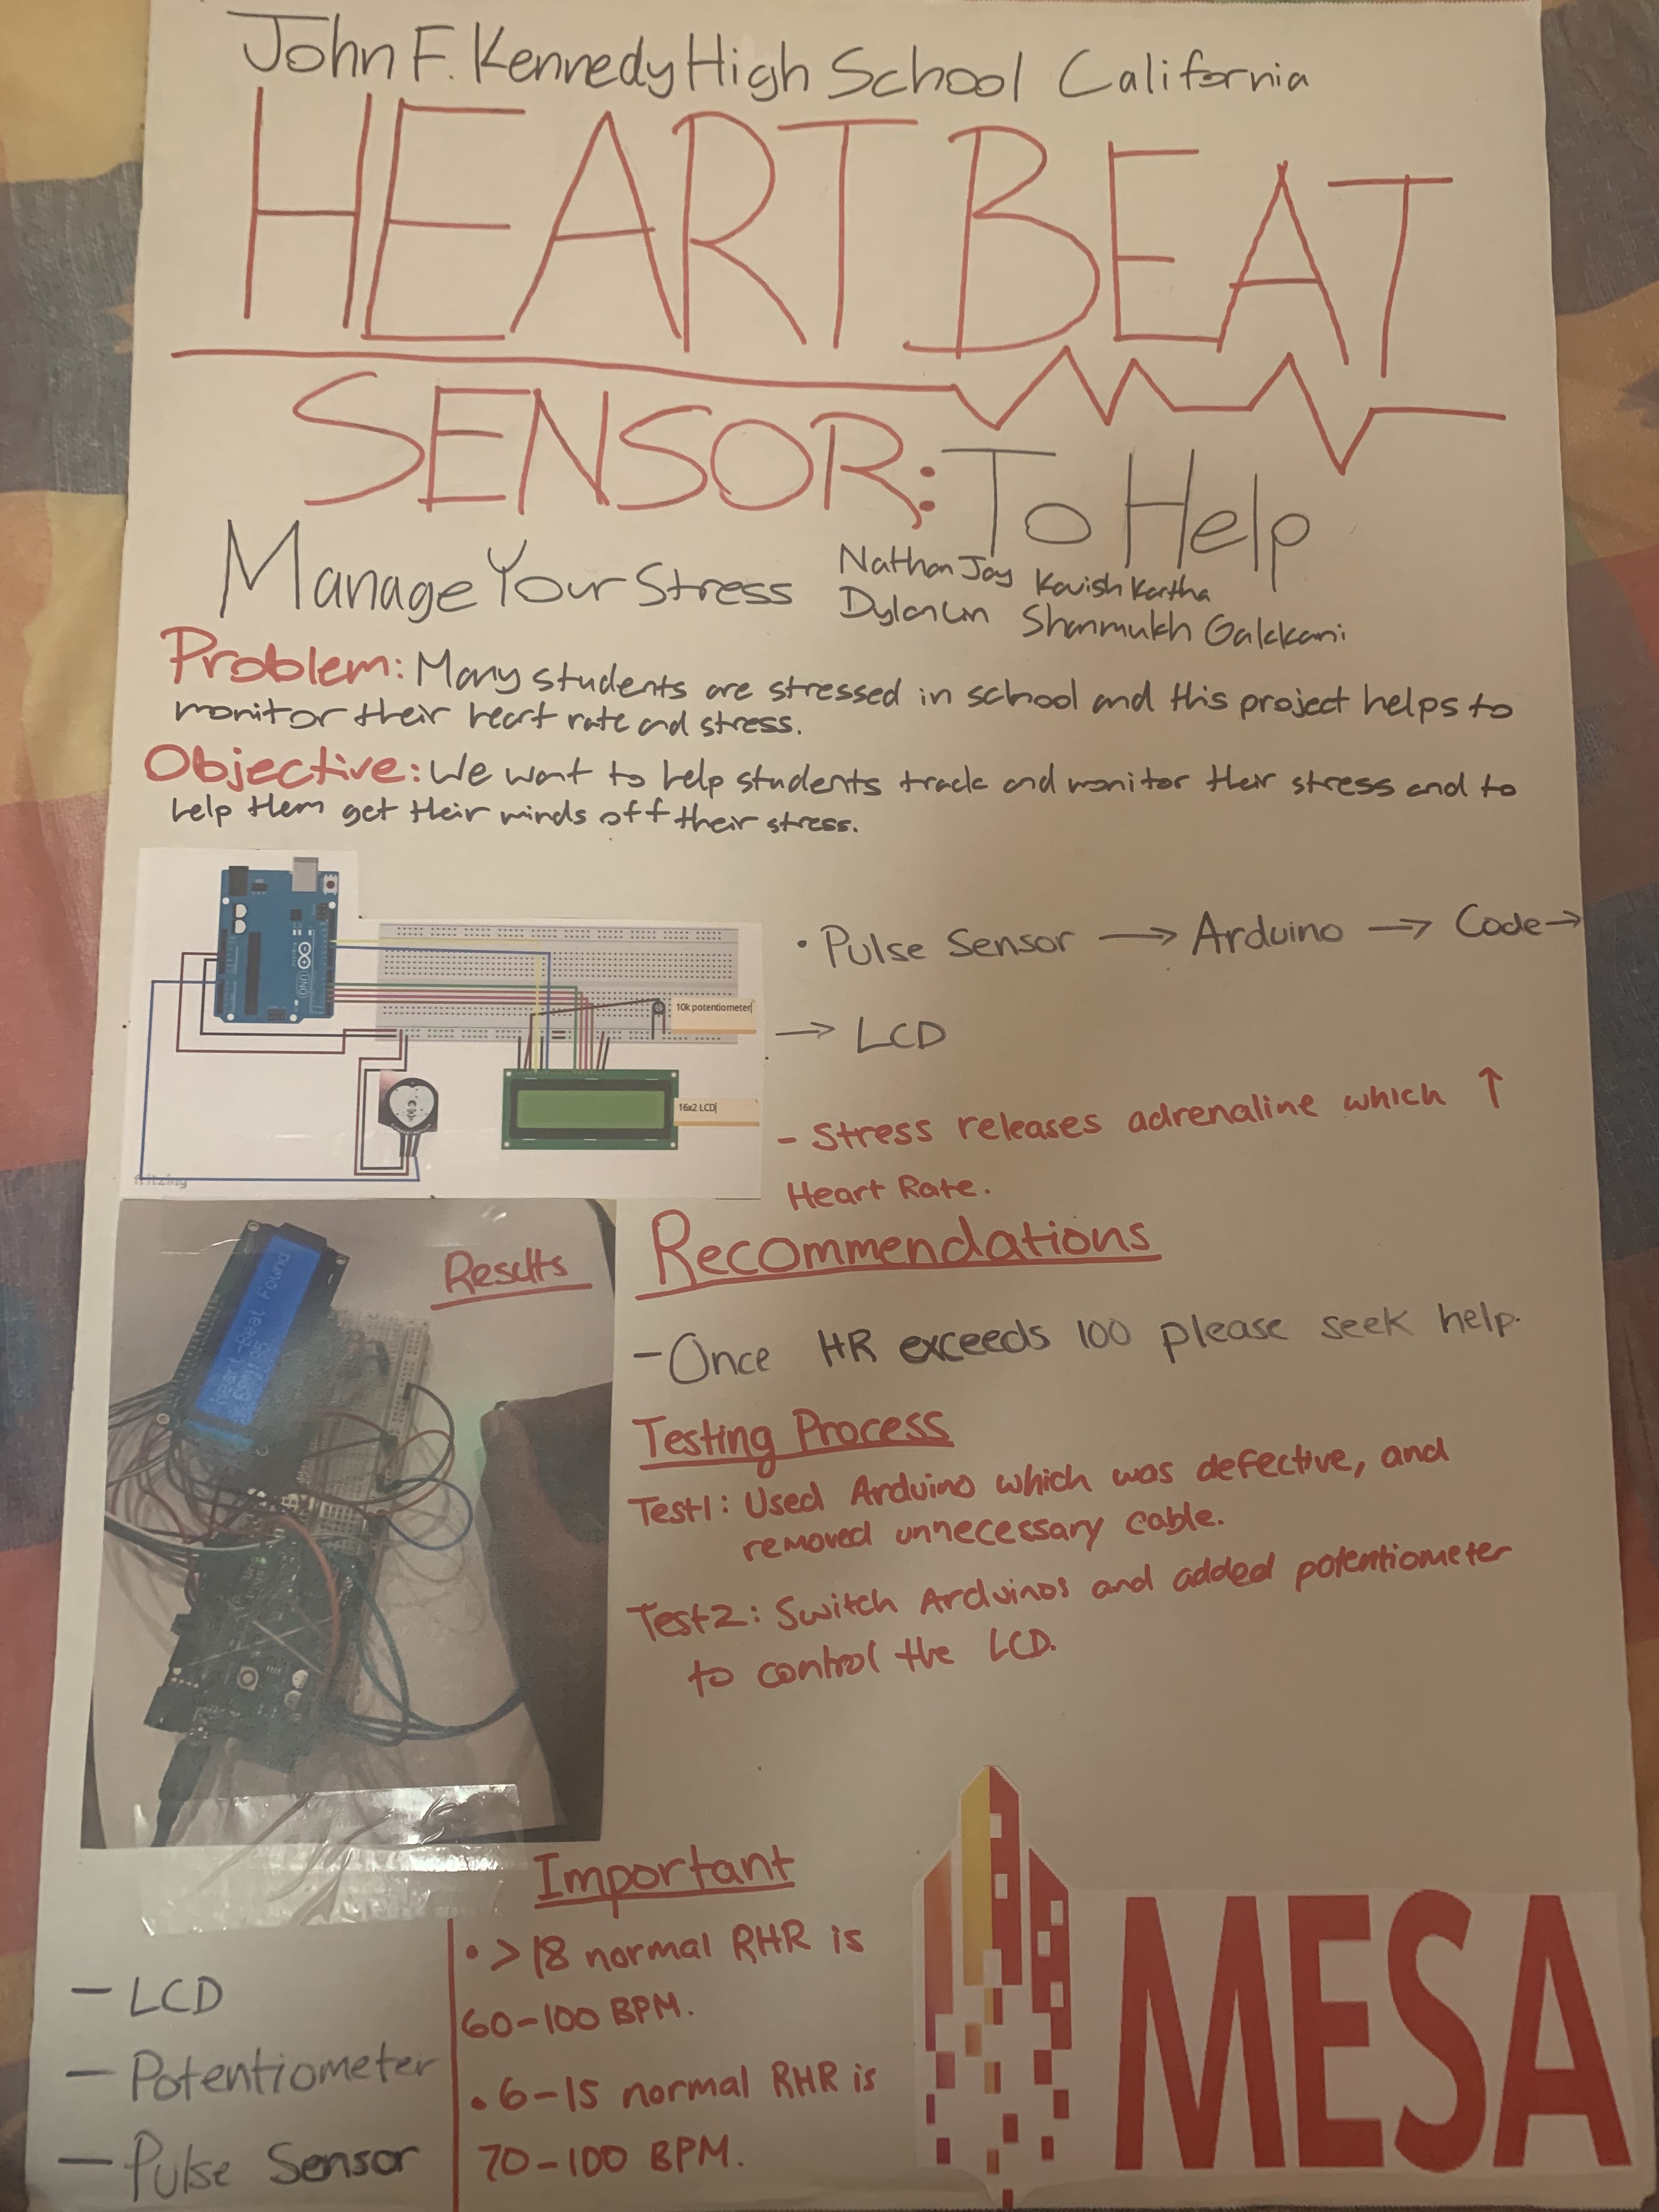 John F. Kennedy High School California
HEART BEAT
SENSOR: To Help
Manage Your Stress
Nathan Jay Kavish Kartha
Dylan Lin Shanmukh Galkkani
Problem: Many students are stressed in school and this project helps to
monitor their heart rate and stress.
Objective: We want to help students track and monitor their stress and to
help them get their minds off their stress.
UNO
10k potentiometer
16x2 LCD
fritzing
• Pulse Sensor → Arduino → Code →
→ LCD
- Stress releases adrenaline which ↑
Heart Rate.
Results
Heart-Beat Found
Recommendations
- Once HR exceeds 100 please seek help.
Testing Process
Test1: Used Arduino which was defective, and
removed unnecessary cable.
Test2: Switch Arduinos and added potentiometer
to control the LCD.
- LCD
- Potentiometer
- Pulse Sensor
Important
• >18 normal RHR is
60-100 BPM.
• 6-15 normal RHR is
70-100 BPM.
MESA